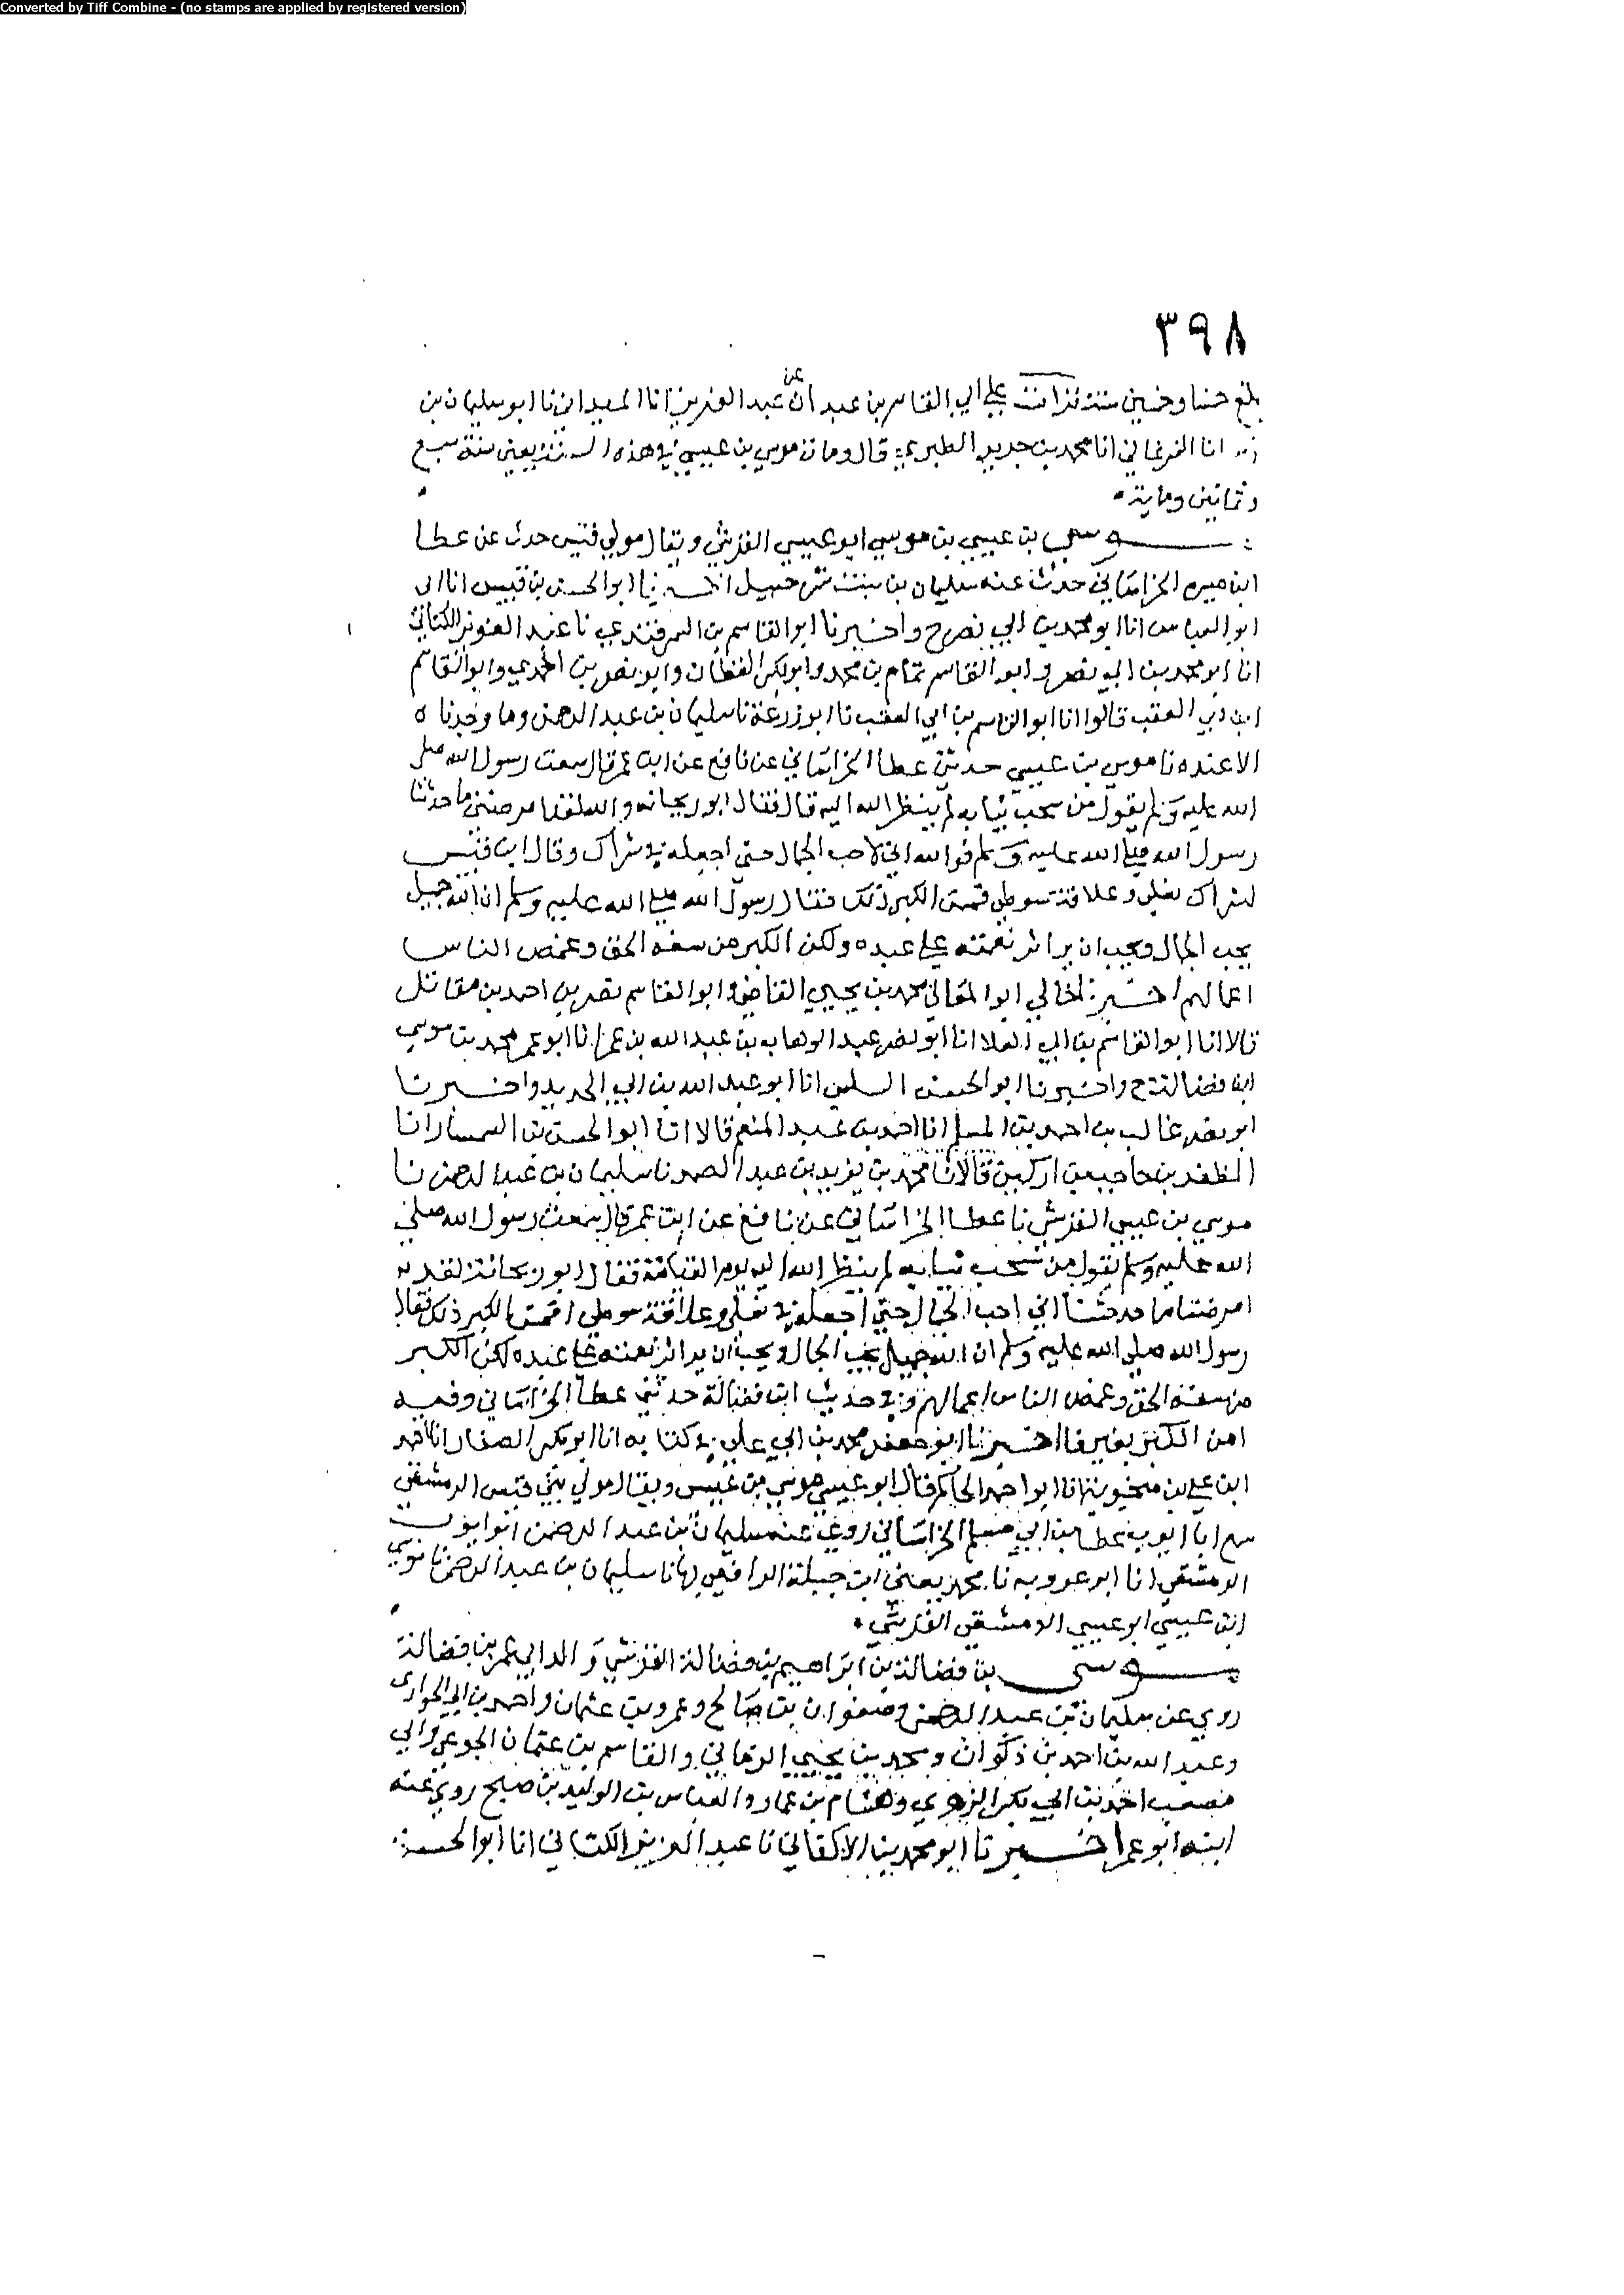 Converted by Tiff Combine - (no stamps are applied by registered version)
٣٩٨
بلغ خمسا وخمسين سنة قرات على ابي القاسم بن عبدان عن عبد العزيز انا الميداني انا ابو سليمان بن
زبر انا الفرغاني انا محمد بن جرير الطبري قال ومات موسى بن عيسى في هذه السنة يعني سنة سبع
وثمانين وماية
موسى بن عيسى بن موسى ابو عيسى القرشي ويقال مولى قيس حدث عن عطا
ابن ميسره الخراساني حدث عنه سليمان بن بنت شرحبيل اخبرنا ابو الحسن بن قبيس انا ابي
ابو العباس انا ابو محمد بن ابي نصر ح واخبرنا ابو القاسم بن السمرقندي نا عبد العزيز الكتاني
انا ابو محمد بن ابي نصر وابو القاسم تمام بن محمد وابو بكر القطان وابو نصر بن الجندي وابو القاسم
ابن ابي العقب قالوا انا ابو القاسم بن ابي العقب نا ابو زرعة نا سليمان بن عبد الرحمن وما وجدناه
الا عنده نا موسى بن عيسى حدثني عطا الخراساني عن نافع عن ابن عمر قال سمعت رسول الله صلى
الله عليه وسلم يقول من سحب ثيابه لم ينظر الله اليه قال فقال ابو ريحانه والله لقد امرضني ما حدثتنا
رسول الله صلى الله عليه وسلم فوالله اني لاحب الجمال حتى اجعله في شراك وقال ابن قبيس
لشراك نعلي وعلاقة سوطي فمن الكبر ذلك فقال رسول الله صلى الله عليه وسلم ان الله جميل
يحب الجمال ويحب ان يرا اثر نعمته على عبده ولكن الكبر من سفه الحق وغمص الناس
اعمالهم اخبرنا خالي ابو المعالي محمد بن يحيى القاضي وابو القاسم نصر بن احمد بن مقاتل
قالا انا ابو القاسم بن ابي العلا انا ابو نصر عبد الوهاب بن عبد الله بن عمر انا ابو عمر محمد بن موسى
ابن فضالة ح واخبرنا ابو الحسن السلمي انا ابو عبد الله بن ابي الحديد واخبرنا
ابو نصر غالب بن احمد بن المسلم انا احمد بن عبد المنعم قالا انا ابو الحسن بن السمسار انا
المظفر بن حاجب بن اركين قالا نا محمد بن يزيد بن عبد الصمد نا سليمان بن عبد الرحمن نا
موسى بن عيسى القرشي نا عطا الخراساني عن نافع عن ابن عمر قال سمعت رسول الله صلى
الله عليه وسلم يقول من سحب ثيابه لم ينظر الله اليه يوم القيامة فقال ابو ريحانة لقد
امرضنا ما حدثتنا اني احب الجمال حتى اجعله في نعلي وعلاقة سوطي افمن الكبر ذلك فقال
رسول الله صلى الله عليه وسلم ان الله جميل يحب الجمال ويحب ان يرا اثر نعمته على عبده لكن الكبر
من سفه الحق وغمص الناس اعمالهم وفي حديث ابن فضالة حدثني عطا الخراساني وفيه
امن الكبر بغير فا اخبرنا ابو جعفر محمد بن ابي علي في كتابه انا ابو بكر الصفار انا احمد
ابن علي بن منجويه انا ابو احمد الحاكم قال ابو عيسى موسى بن عيسى ويقال مولى بني قيس الدمشقي
سمع ابا ايوب عطا بن ابي مسلم الخراساني روى عنه سليمان بن عبد الرحمن ابو ايوب
الدمشقي انا ابو عروبه نا محمد يعني ابن جبلة الرافقي بها نا سليمان بن عبد الرحمن نا موسى
ابن عيسى ابو عيسى الدمشقي القرشي
موسى بن فضالة بن ابراهيم بن فضالة القرشي والد ابي عمر بن فضالة
روى عن سليمان بن عبد الرحمن وصفوان بن صالح وعمرو بن عثمان واحمد بن ابي الحواري
وعبد الله بن احمد بن ذكوان ومحمد بن يحيى الزماني والقاسم بن عثمان الجوعي وابي
مصعب احمد بن ابي بكر الزهري وهشام بن عمار والعباس بن الوليد بن صبح روى عنه
ابنه ابو عمر اخبرنا ابو محمد بن الاكفاني نا عبد العزيز الكتاني انا ابو الحسن